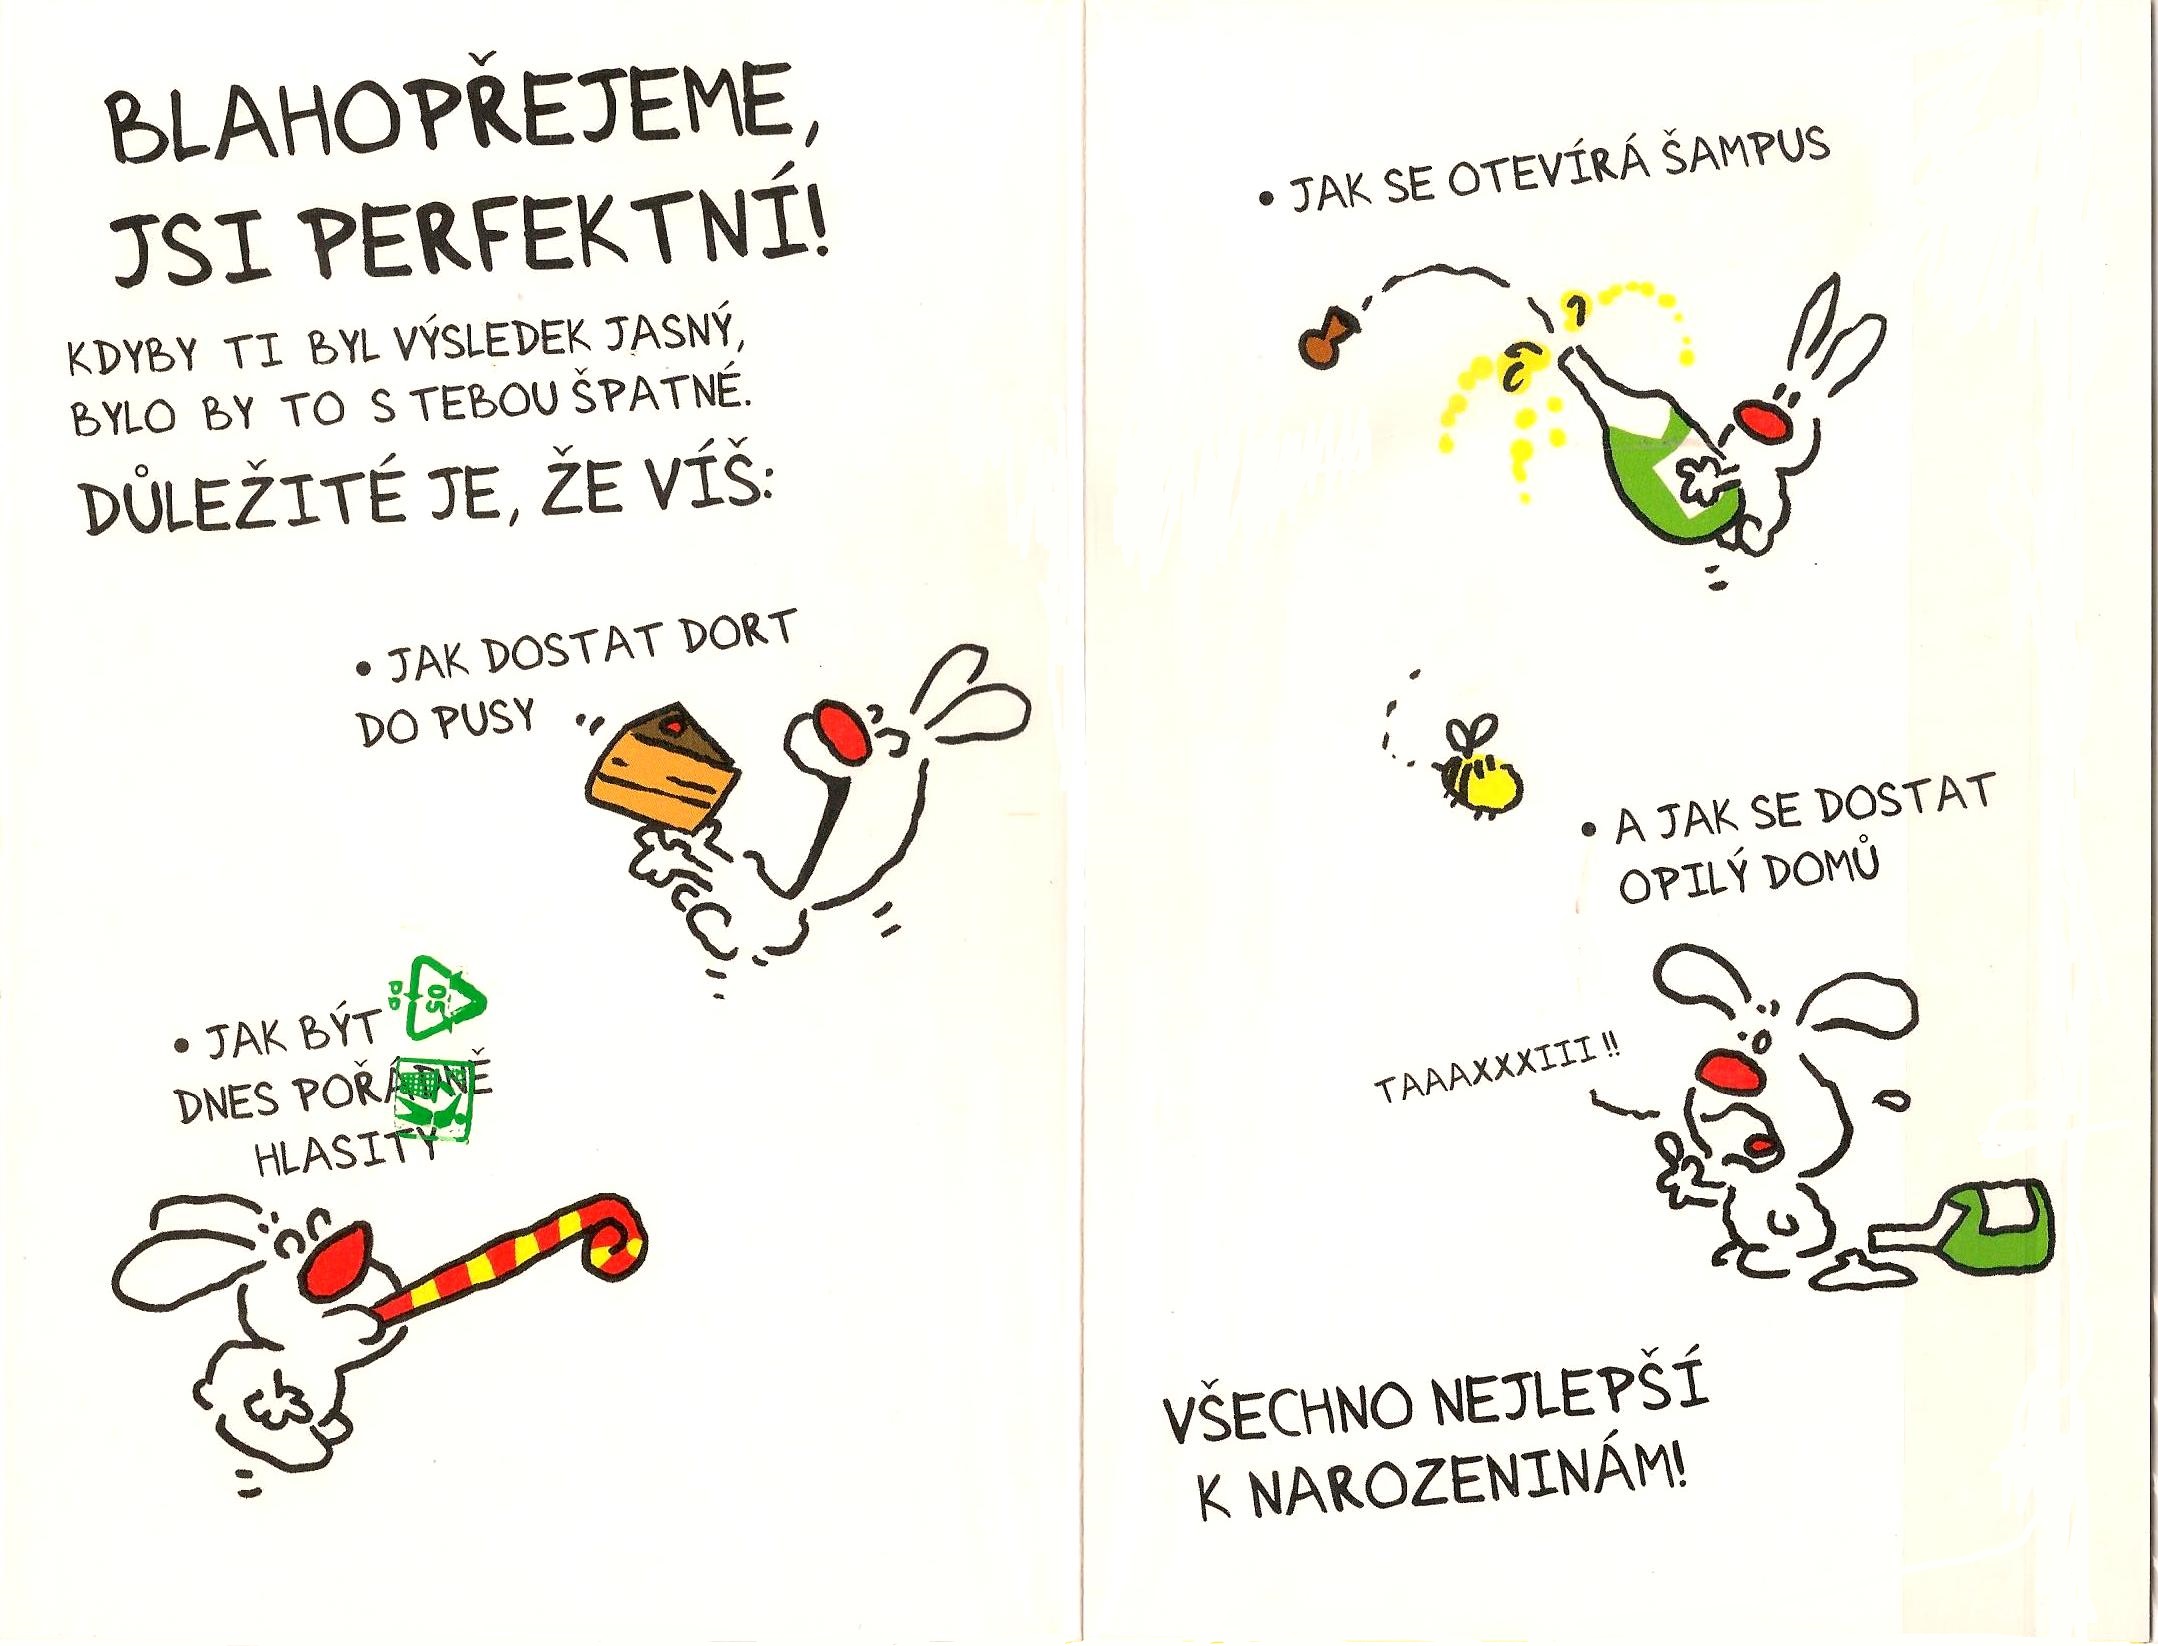 BLAHOPŘEJEME,
JSI PERFEKTNÍ!
KDYBY TI BYL VÝSLEDEK JASNÝ,
BYLO BY TO S TEBOU ŠPATNÉ.
DŮLEŽITÉ JE, ŽE VÍŠ:
• JAK DOSTAT DORT
DO PUSY
• JAK BÝT
DNES POŘÁDNĚ
HLASITÝ
05
PP
• JAK SE OTEVÍRÁ ŠAMPUS
• A JAK SE DOSTAT
OPILÝ DOMŮ
TAAAXXXIII!!
VŠECHNO NEJLEPŠÍ
K NAROZENINÁM!